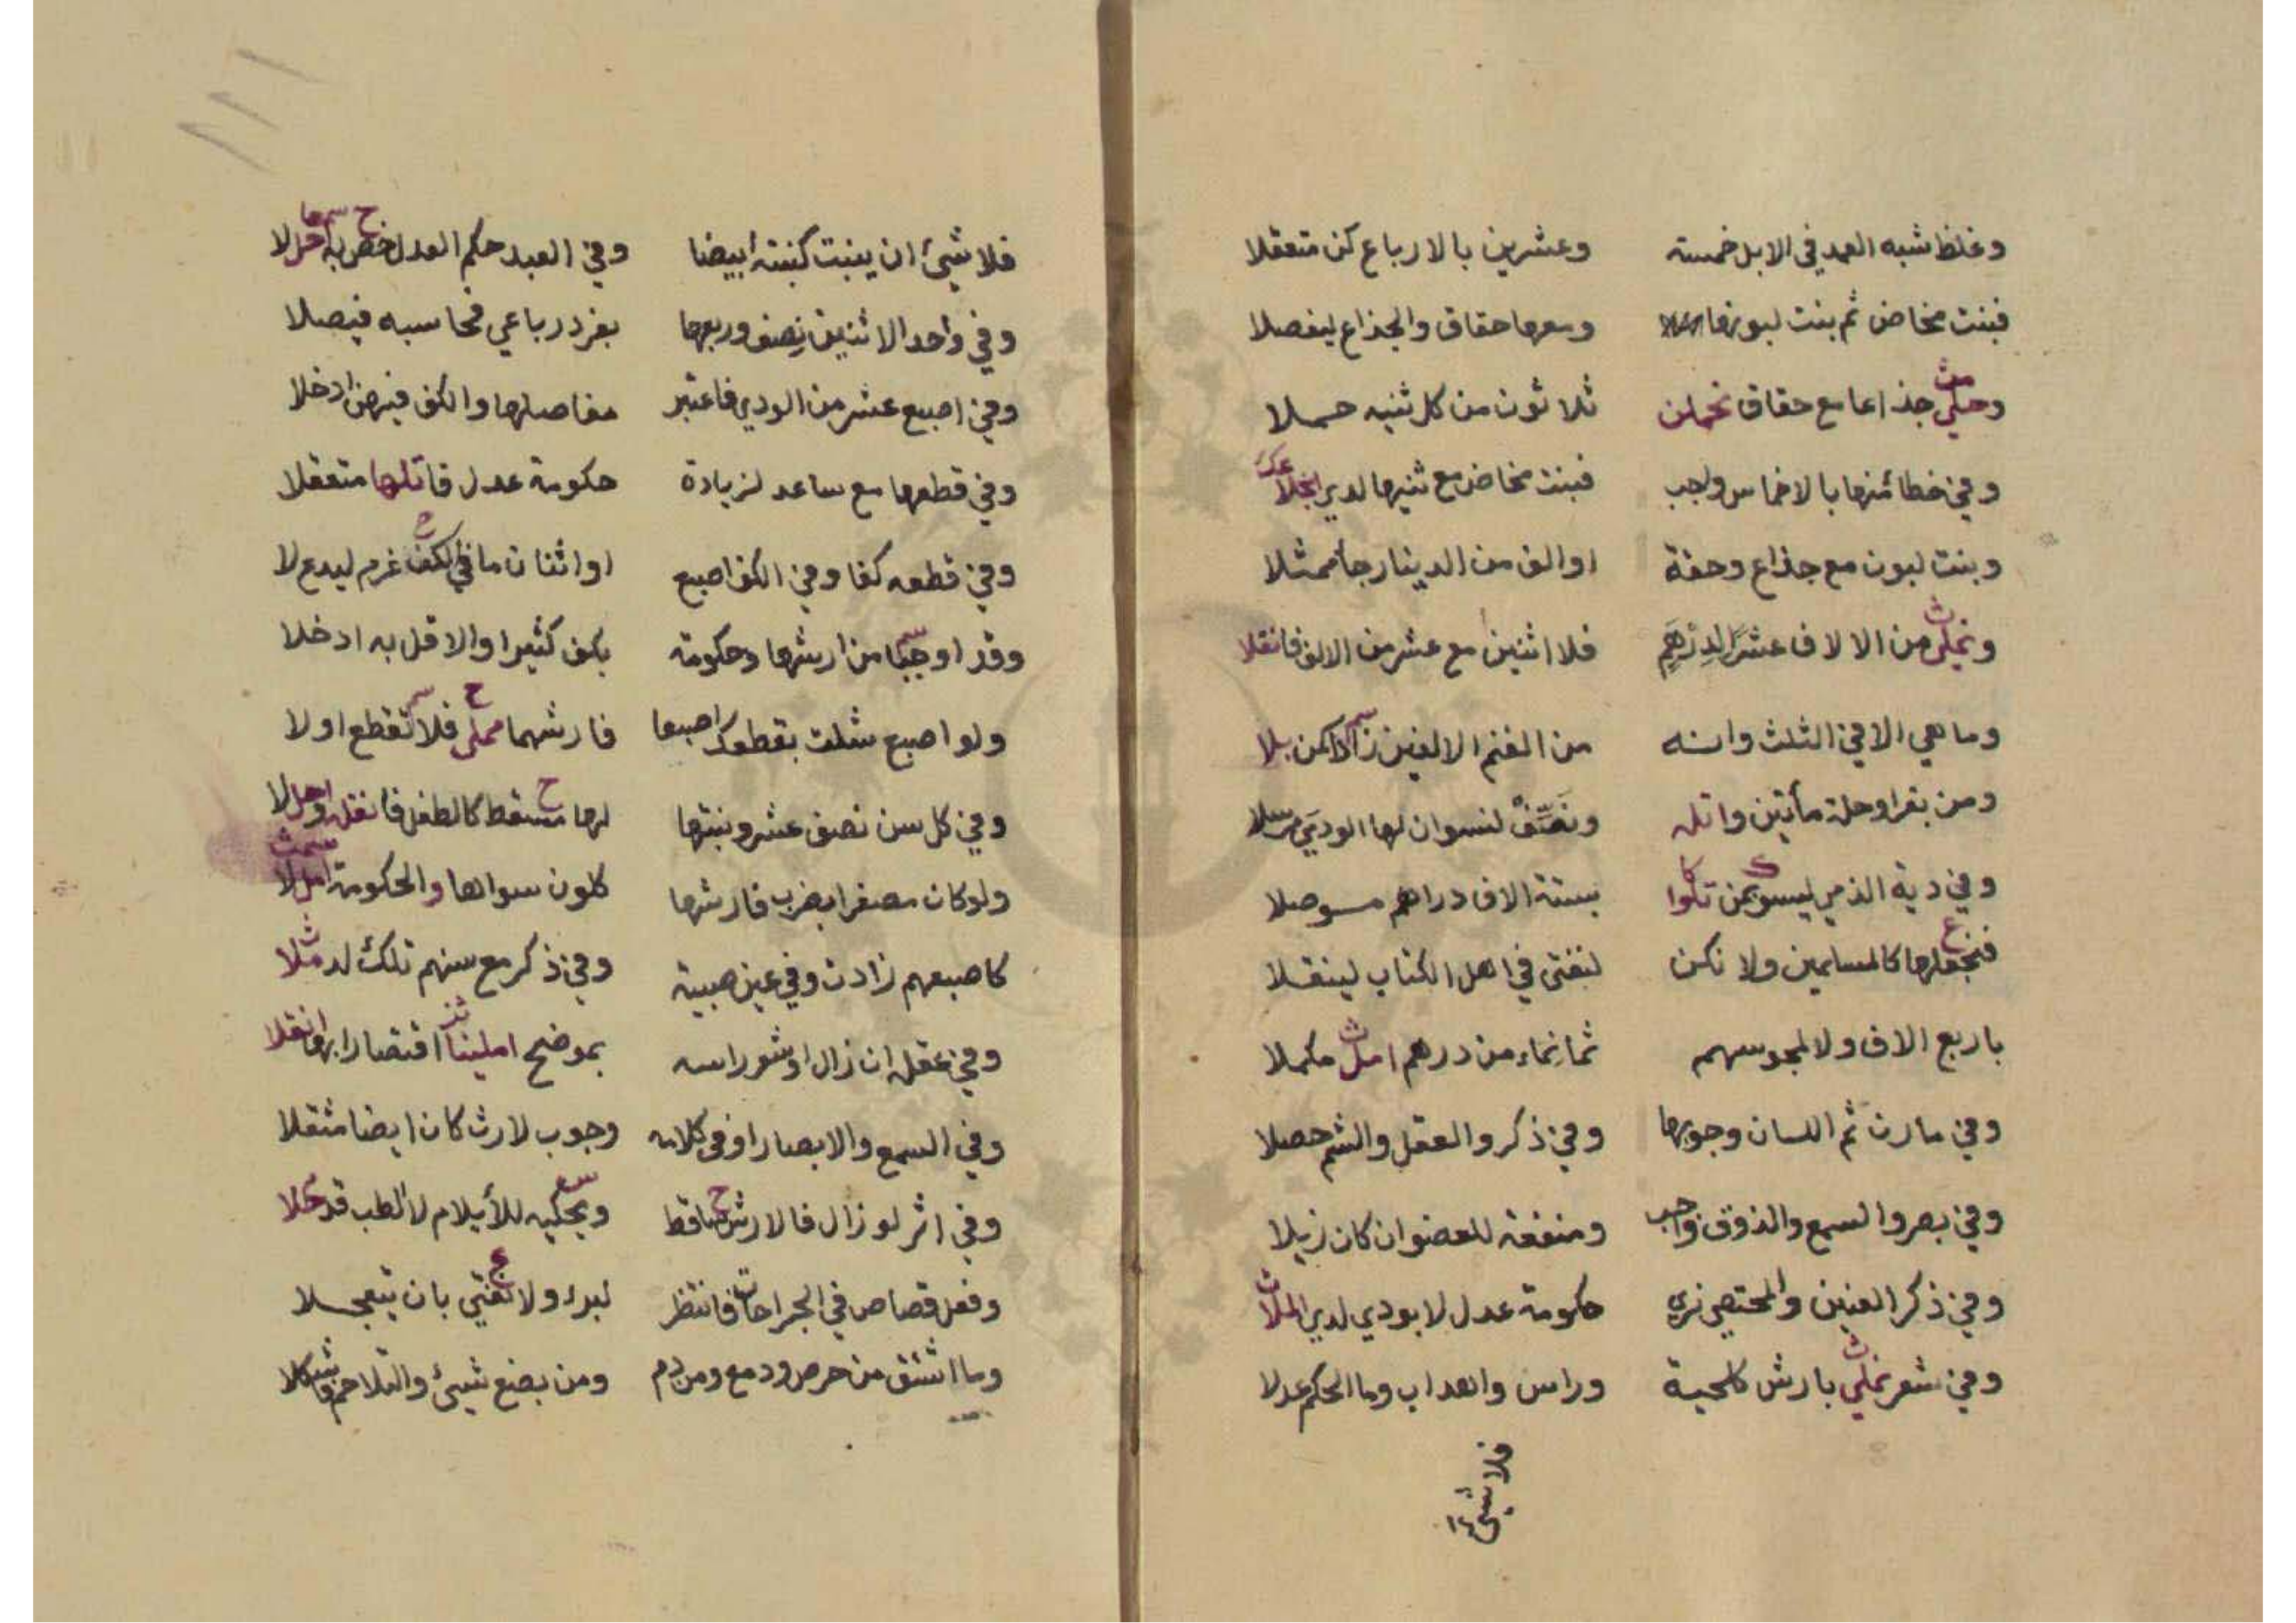 وغلظ شبه العمد في الابل خمسة وعشرين بالارباع كن متعقلا
فبنت مخاض ثم بنت لبونها ومعها حقاق والجذاع ليفصلا
وحكى جذاعا مع حقاق ثلاثون من كل ثنيه حملا
وفي خطا منها بالاخماس واجب فبنت مخاض مع ثنيها لدى
وبنت لبون مع جذاع وحقة اوالف من الدينار جا ممثلا
من الالاف عشرا لدرهم فلا اثنين مع عشر من الالف فانقلا
وما هي الا في الثلث وانه من الغنم الالفين زادا كمن بلا
ومن بقر اوحلة مأتين واتله ونصف لنسوان لها الودي مرسلا
وفي دية الذمي ليسو بمن تلوا بستة الاف دراهم موصلا
فنجعلها كالمسلمين ولا نكن لنفتى في اهل الكتاب لينقلا
باربع الاف ولا لمجوسهم ثمانماء من درهم امل مكملا
وفي مارن ثم اللسان وجوبها وفي ذكر والعقل والشم حصلا
وفي بصر والسمع والذوق واجب ومنفعة للعضو ان كان زيلا
وفي ذكر العنين والمختصي نرى حكومة عدل لا بودي لدى الملا
وفي شعر نملي بارش كلحية وراس واهداب وما الحكم عدلا
فلا شيئ
فلا شيئ ان ينبت كنبته ابيضا وفي العبد حكم العدل خص به
وفي واحد الاثنين نصف وربعها بفرد رباعي فحاسبه فيصلا
وفي اصبع عشر من الودي فاعتبر مفاصلها والكف فيهن ادخلا
وفي قطعها مع ساعد لزيادة حكومة عدل قاتلها متعقلا
وفي قطعه كفا وفي الكف اصبع اواثنان ما في الكف غرم ليدع لا
وقد اوجبا من ارشها وحكومة بكف كثيرا والاقل به ادخلا
ولو اصبع شلت بقطعك اصبعا فارشهما مملى فلا تقطع اولا
وفي كل سن نصف عشر ونبتها لها مسقط كالطفل فانقل
ولو كان مصفرا بضرب فارشها كلون سواها والحكومة املا
كاصبعهم زادت وفي عين صبية وفي ذكر مع سنهم تلك لد مثلا
وفي عقله ان زال اوشعر راسه بموضح املينا اقتصارا بها انقلا
وفي السمع والابصار اوفي كلامه وجوب لارث كان ايضا مثقلا
وفي اثر لو زال فالارش ساقط ويحكيه للأيلام لا لطب قد خلا
وفعل قصاص في الجراحات فانتظر لبرء ولا نفتي بان يتعجلا
وما اشتق من حرص ودمع ومن دم ومن بضع شيئ والتلاحم